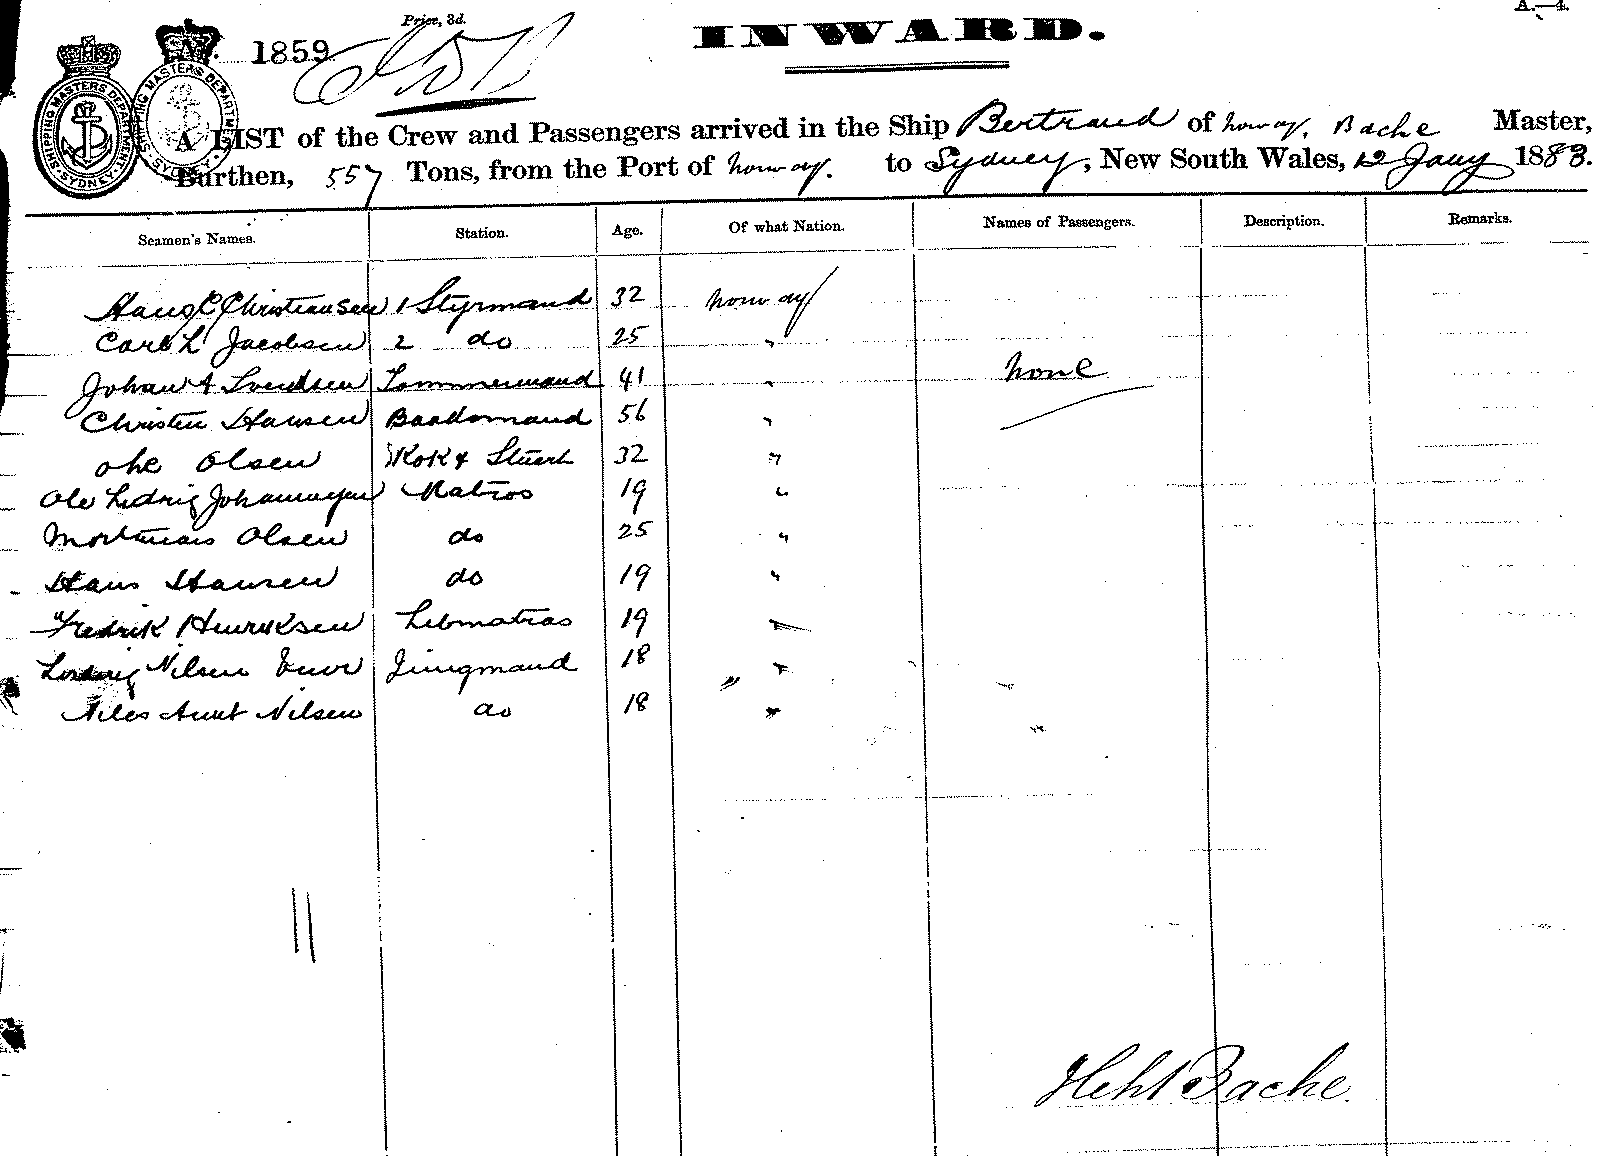 A.—4.
Price, 3d.
INWARD.
1859
SHIPPING MASTERS DEPARTMENT SYDNEY
SHIPPING MASTERS DEPARTMENT SYDNEY
A LIST of the Crew and Passengers arrived in the Ship Bertrand of Norway, Bache Master,
Burthen, 557 Tons, from the Port of Norway. to Sydney, New South Wales, 12 Jany 1883.
Seamen's Names. Station. Age. Of what Nation. Names of Passengers. Description. Remarks.
Hans C Christiansen 1 Styrmand 32 Norway
Carl L Jacobsen 2 do 25 "
Johan A Svendsen Tommermand 41 " None
Christen Hansen Baadsmand 56 "
Ole Olsen Kok & Stuert 32 "
Ole Ledvig Matros 19 "
Olsen do 25 "
Hans Hansen do 19 "
Fredrik Henriksen Letmatros 19 "
Ludvig Nilsen Jungmand 18 " "
Niles Nilsen do 18 "
11
Bache.